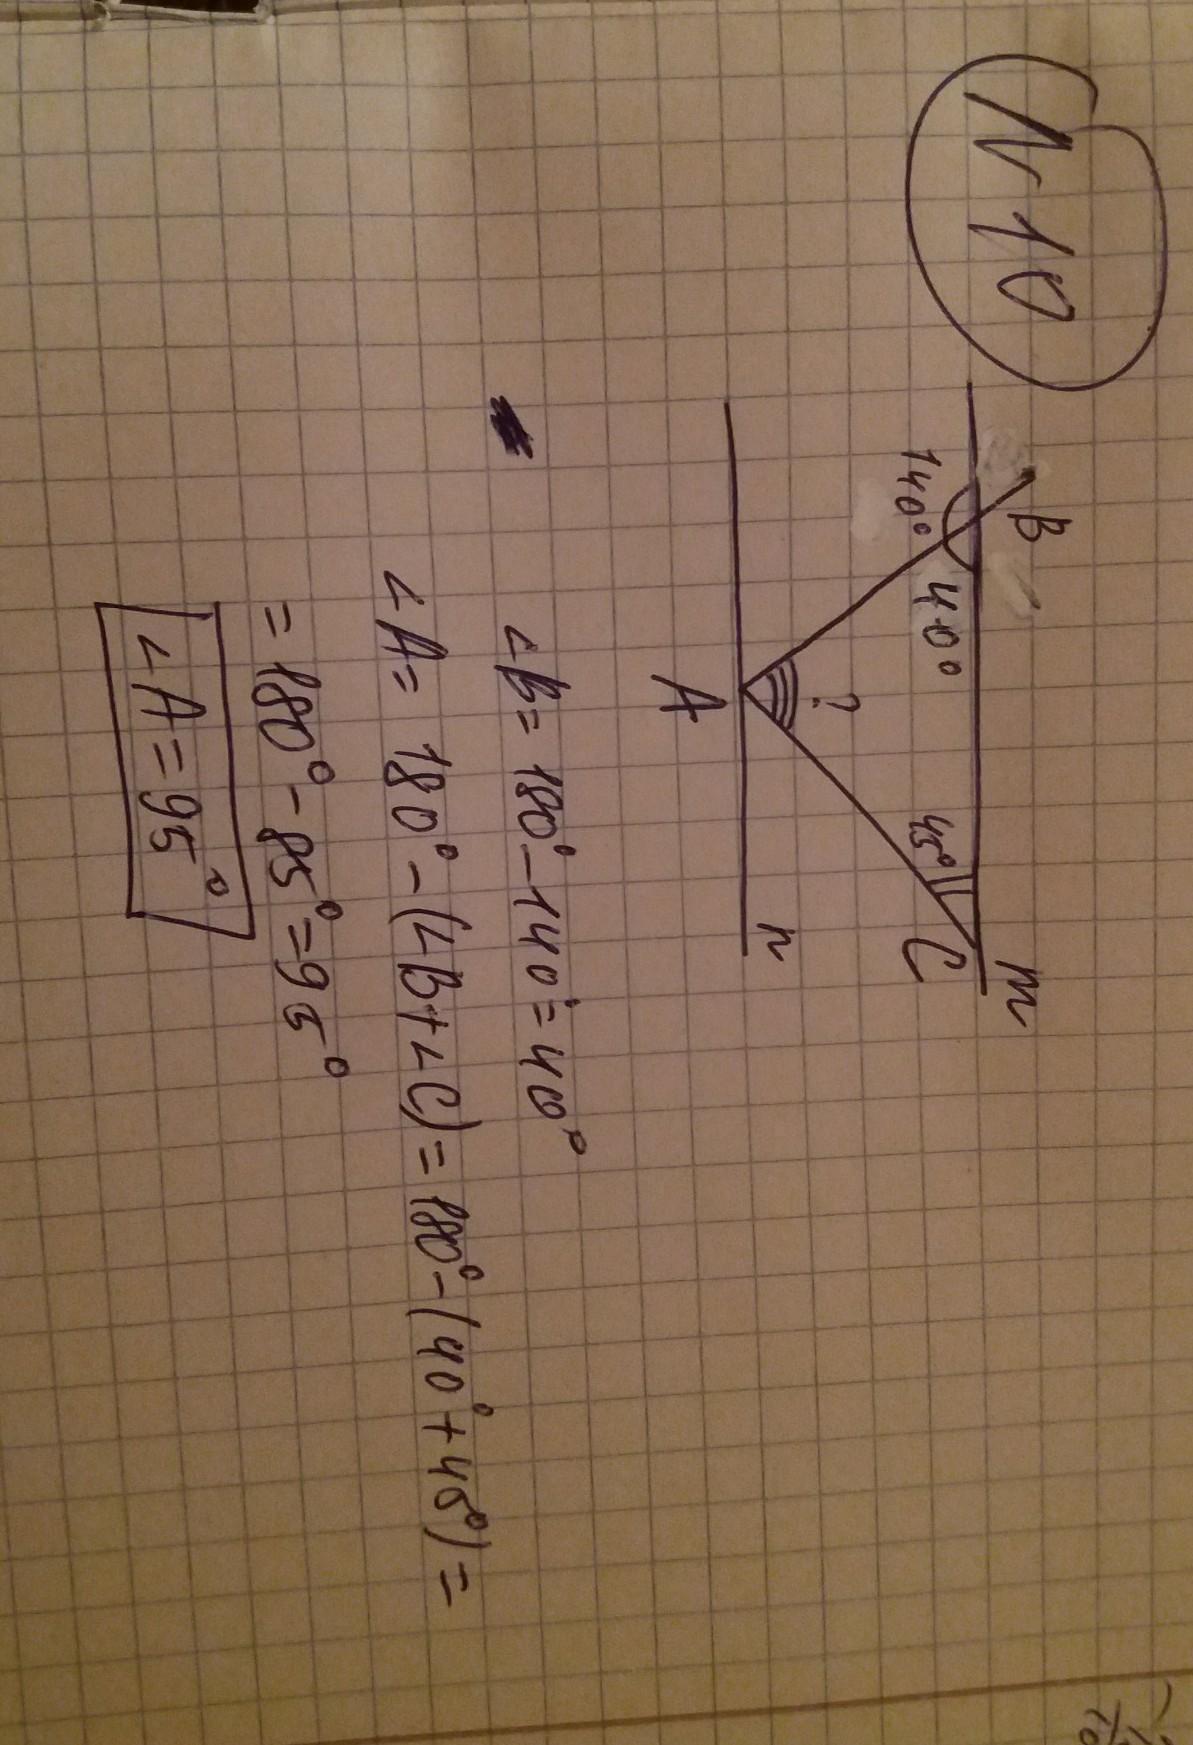 N 10
B
m
140°
40°
45°
C
?
n
A
∠B = 180° - 140° = 40°
∠A = 180° - (∠B + ∠C) = 180° - (40° + 45°) =
= 180° - 85° = 95°
∠A = 95°